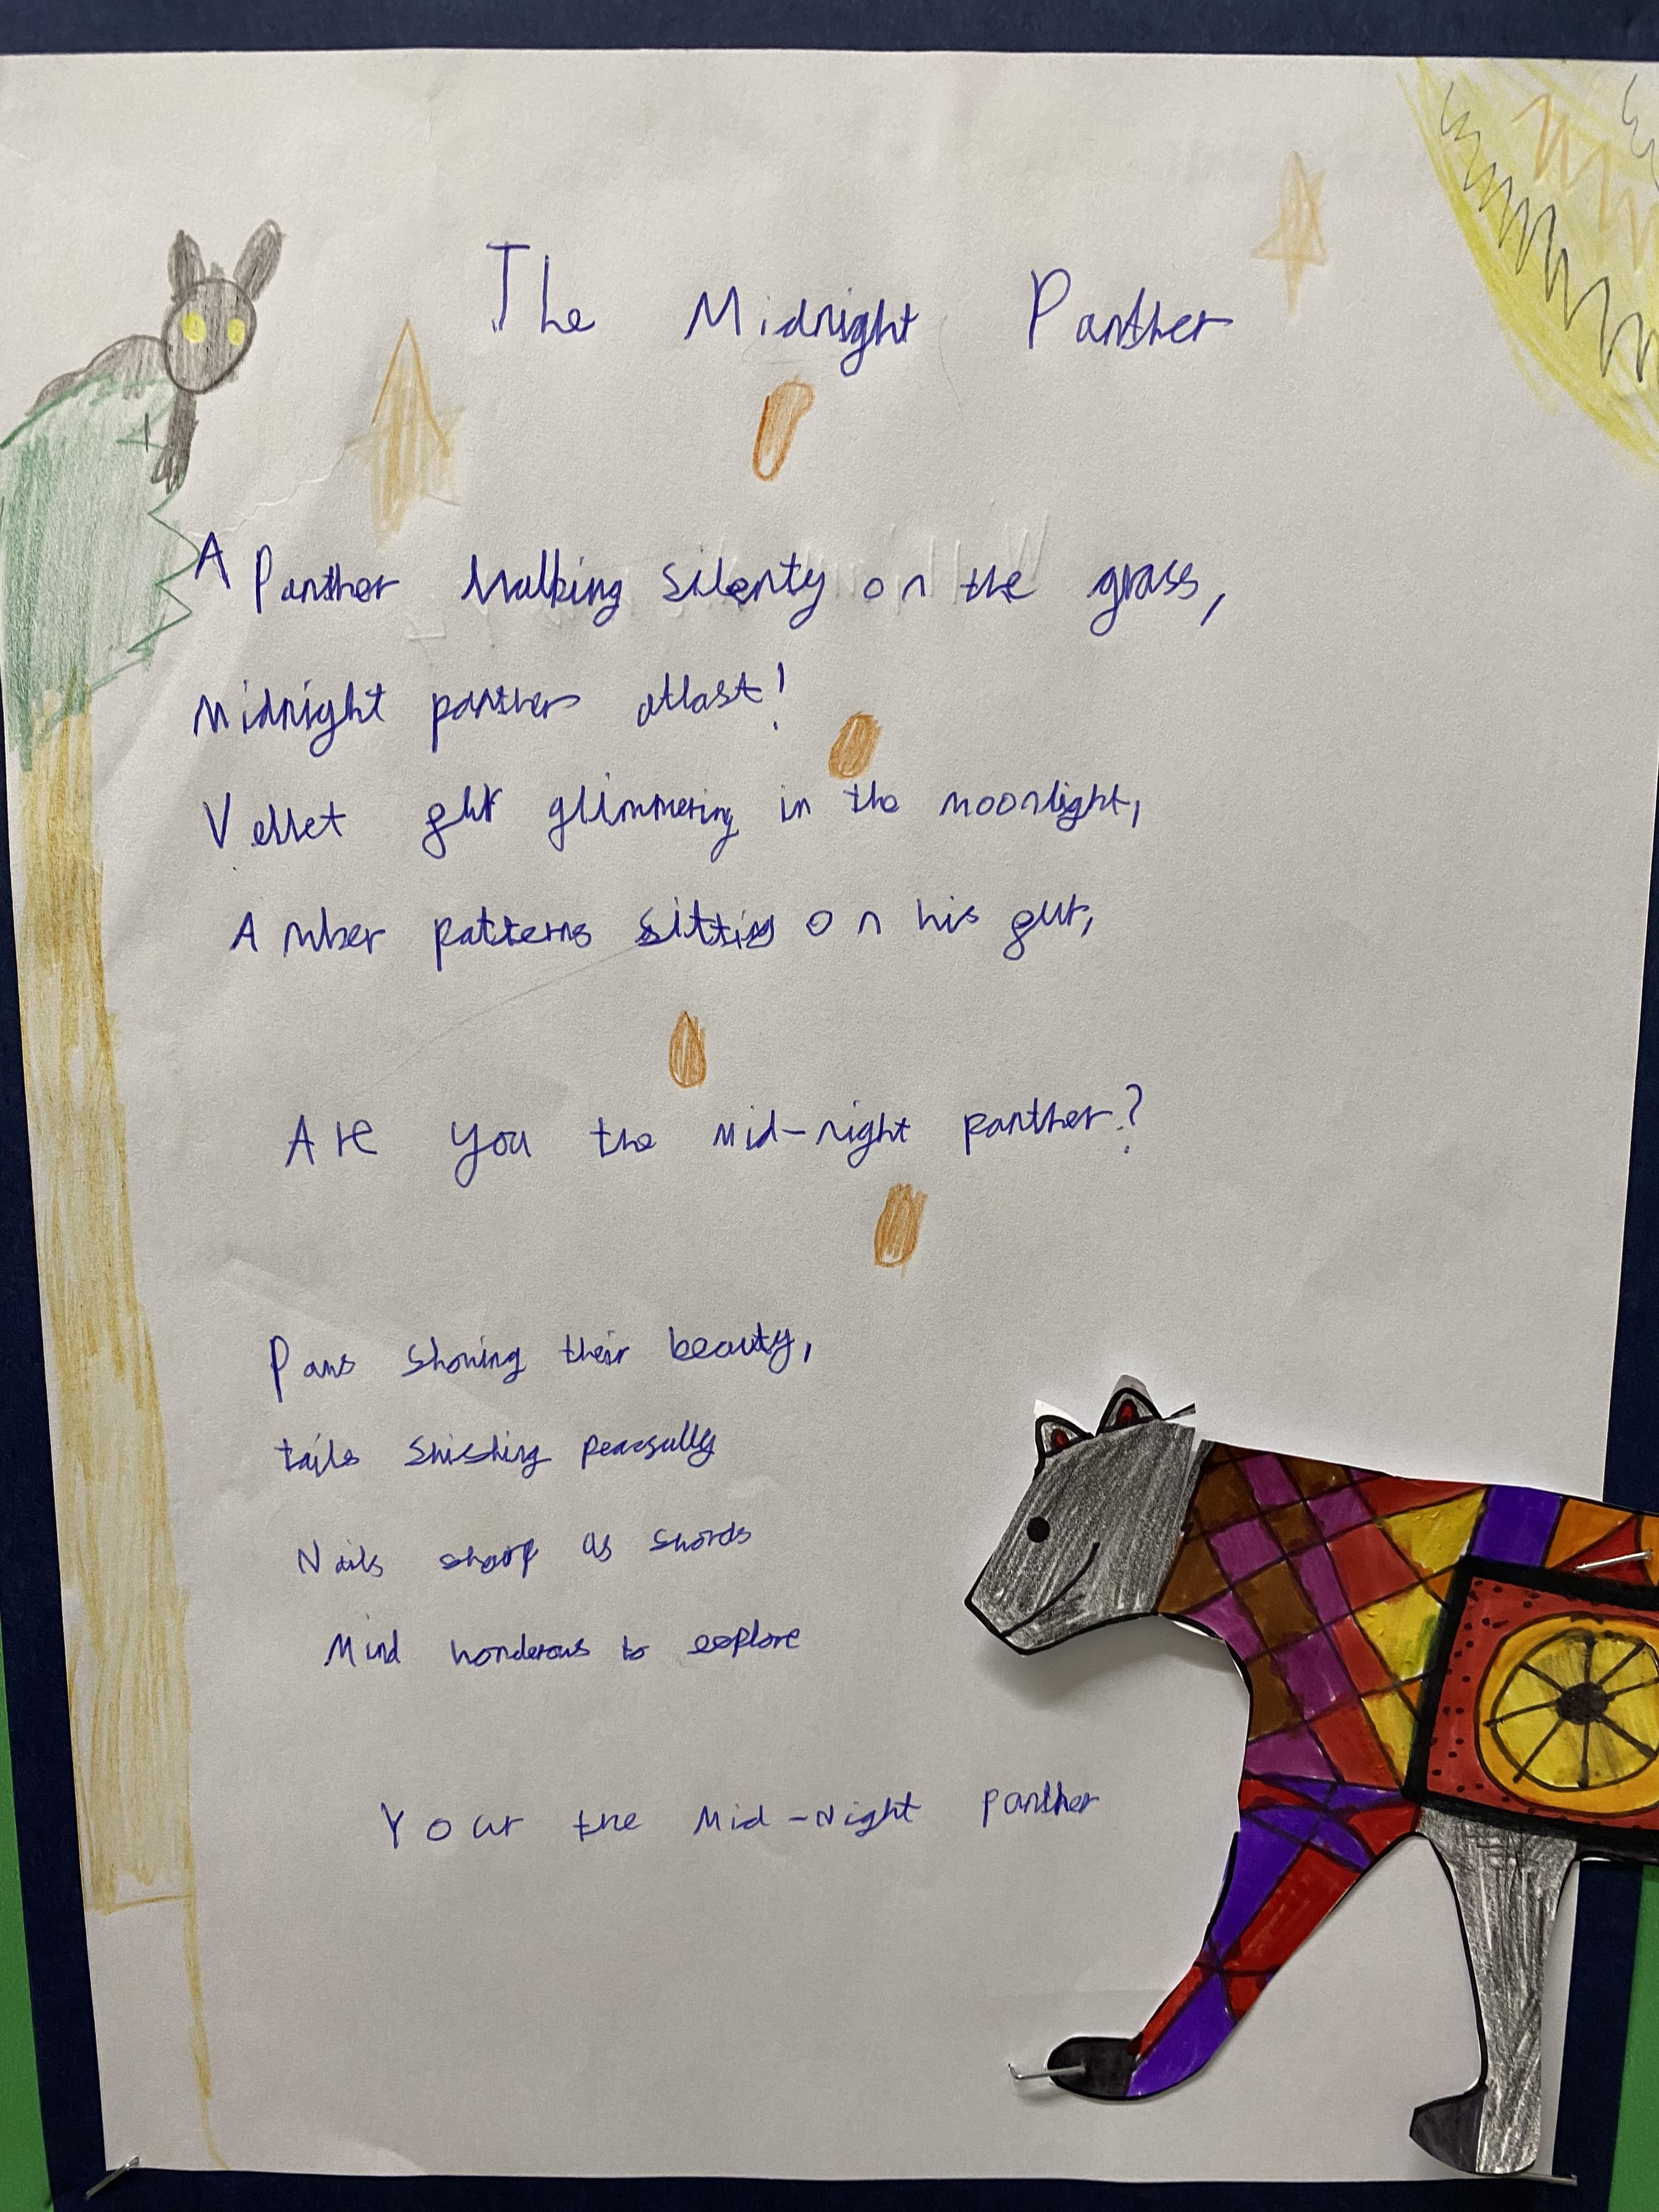 The Midnight Panther
A Panther Walking silenty on the grass,
Midnight panther atlast!
Vellet fur glimmering in the moonlight,
Amber patterns sitting on his fur,
Are you the mid-night panther?
Paws showing their beauty,
tails swishing peacfully
Nails sharp as swords
Mind wonderous to explore
Your the Mid-Night panther